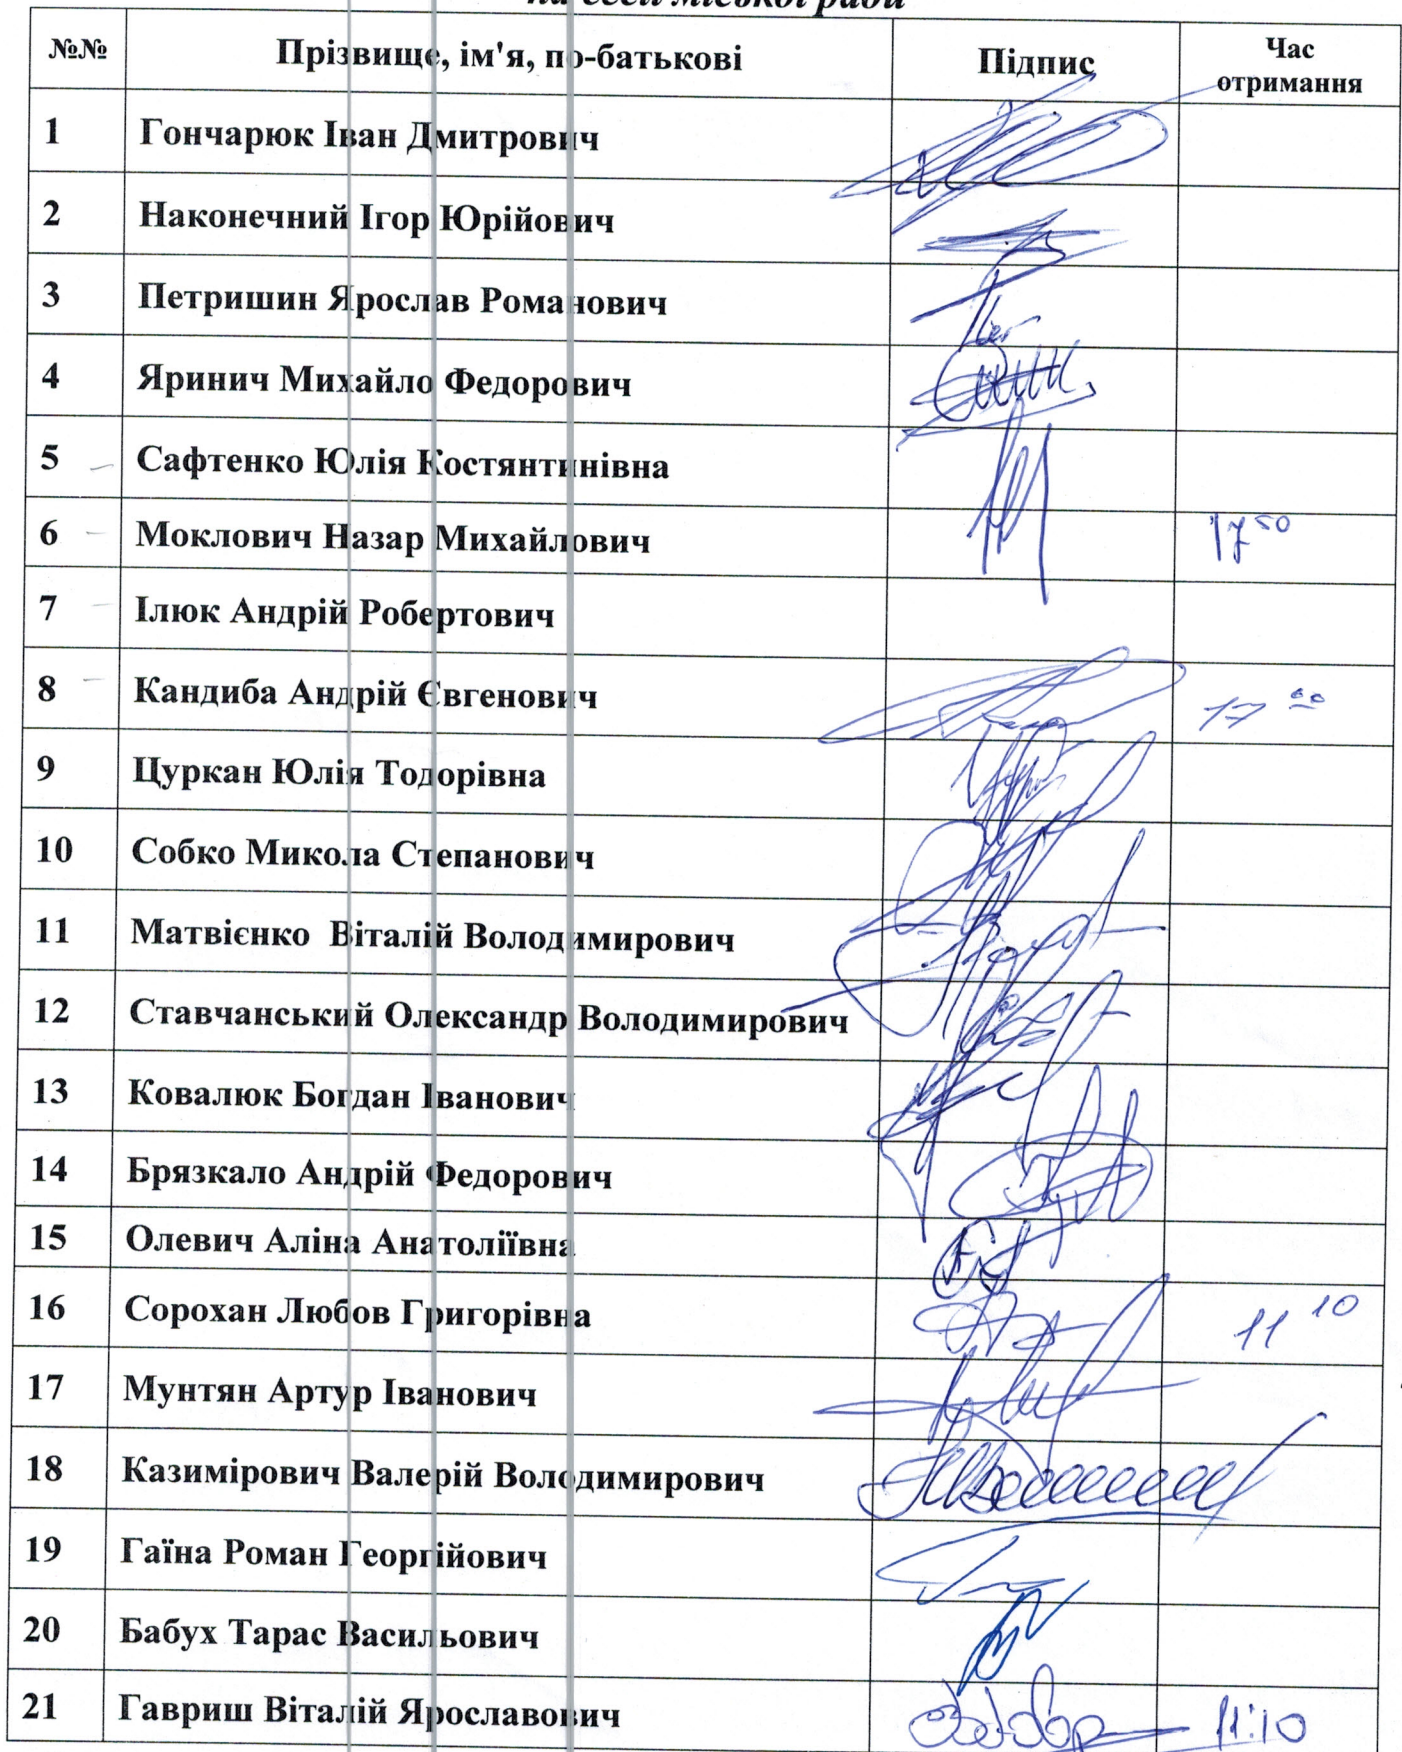 на сесії міської ради
№№ Прізвище, ім'я, по-батькові Підпис Час отримання
1 Гончарюк Іван Дмитрович
2 Наконечний Ігор Юрійович
3 Петришин Ярослав Романович
4 Яринич Михайло Федорович
5 Сафтенко Юлія Костянтинівна
6 Моклович Назар Михайлович 17 50
7 Ілюк Андрій Робертович
8 Кандиба Андрій Євгенович 17 00
9 Цуркан Юлія Тодорівна
10 Собко Микола Степанович
11 Матвієнко Віталій Володимирович
12 Ставчанський Олександр Володимирович
13 Ковалюк Богдан Іванович
14 Брязкало Андрій Федорович
15 Олевич Аліна Анатоліївна
16 Сорохан Любов Григорівна 11 10
17 Мунтян Артур Іванович
18 Казимірович Валерій Володимирович
19 Гаїна Роман Георгійович
20 Бабух Тарас Васильович
21 Гавриш Віталій Ярославович 11:10